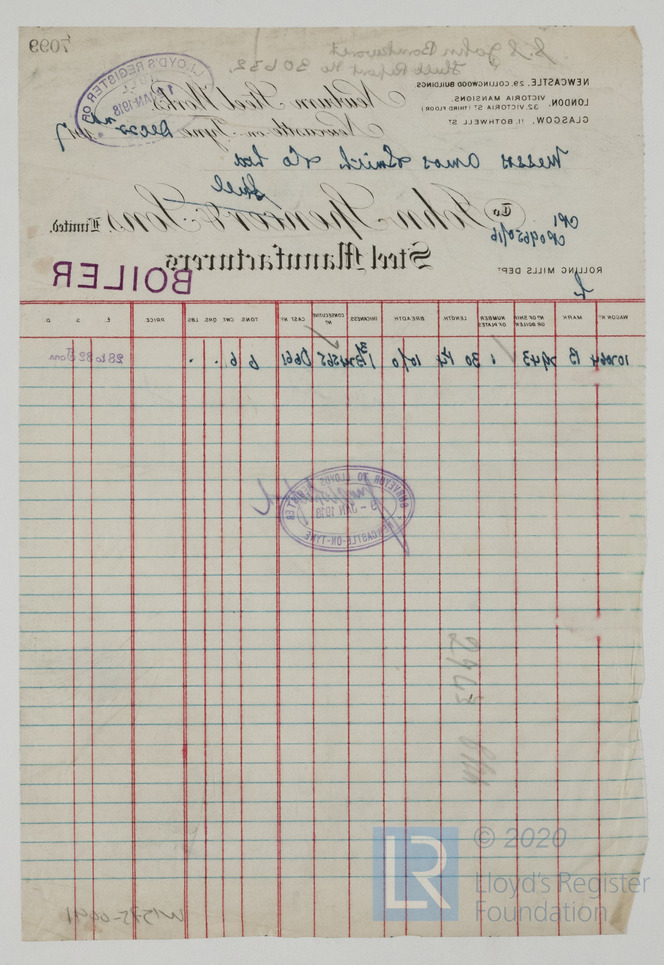 7099
S.S. John Bankwart
Steel Report No 30632.
NEWCASTLE, 29, COLLINGWOOD BUILDINGS
LONDON, VICTORIA MANSIONS,
32, VICTORIA ST (THIRD FLOOR)
GLASGOW, 11, BOTHWELL ST
LLOYD'S REGISTER OF
JAN 1918
Newburn Steel Works
Newcastle-on-Tyne, Dec 22nd 1917
Messrs Amos Smith & Co Ltd
Hull
To John Spencer & Sons, Limited.
Steel Manufacturers
ROLLING MILLS DEPT
BOILER
WAGON No MARK No OF SHIP OR BOILER NUMBER OF PLATES LENGTH BREADTH THICKNESS CONSECUTIVE No CAST No TONS. CWT QRS. LBS PRICE £ S D
107064 B 2943 1 30 B4565 D661 6 6 . . 28 to 32 Tons
SURVEYOR TO LLOYD'S REGISTER
JAN 1918
NEWCASTLE-ON-TYNE
W1575-0091
LR
© 2020
Lloyd's Register
Foundation